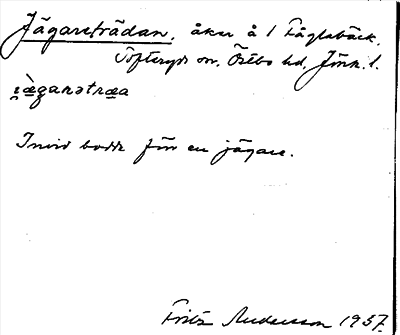 Jägareträdan, åker å 1 Fåglabäck,
Tofteryds sn, Östbo hd, Jönk. l.
i̯ægarətræa
Invid bodde förr en jägare.
Fritz Andersson 1937.